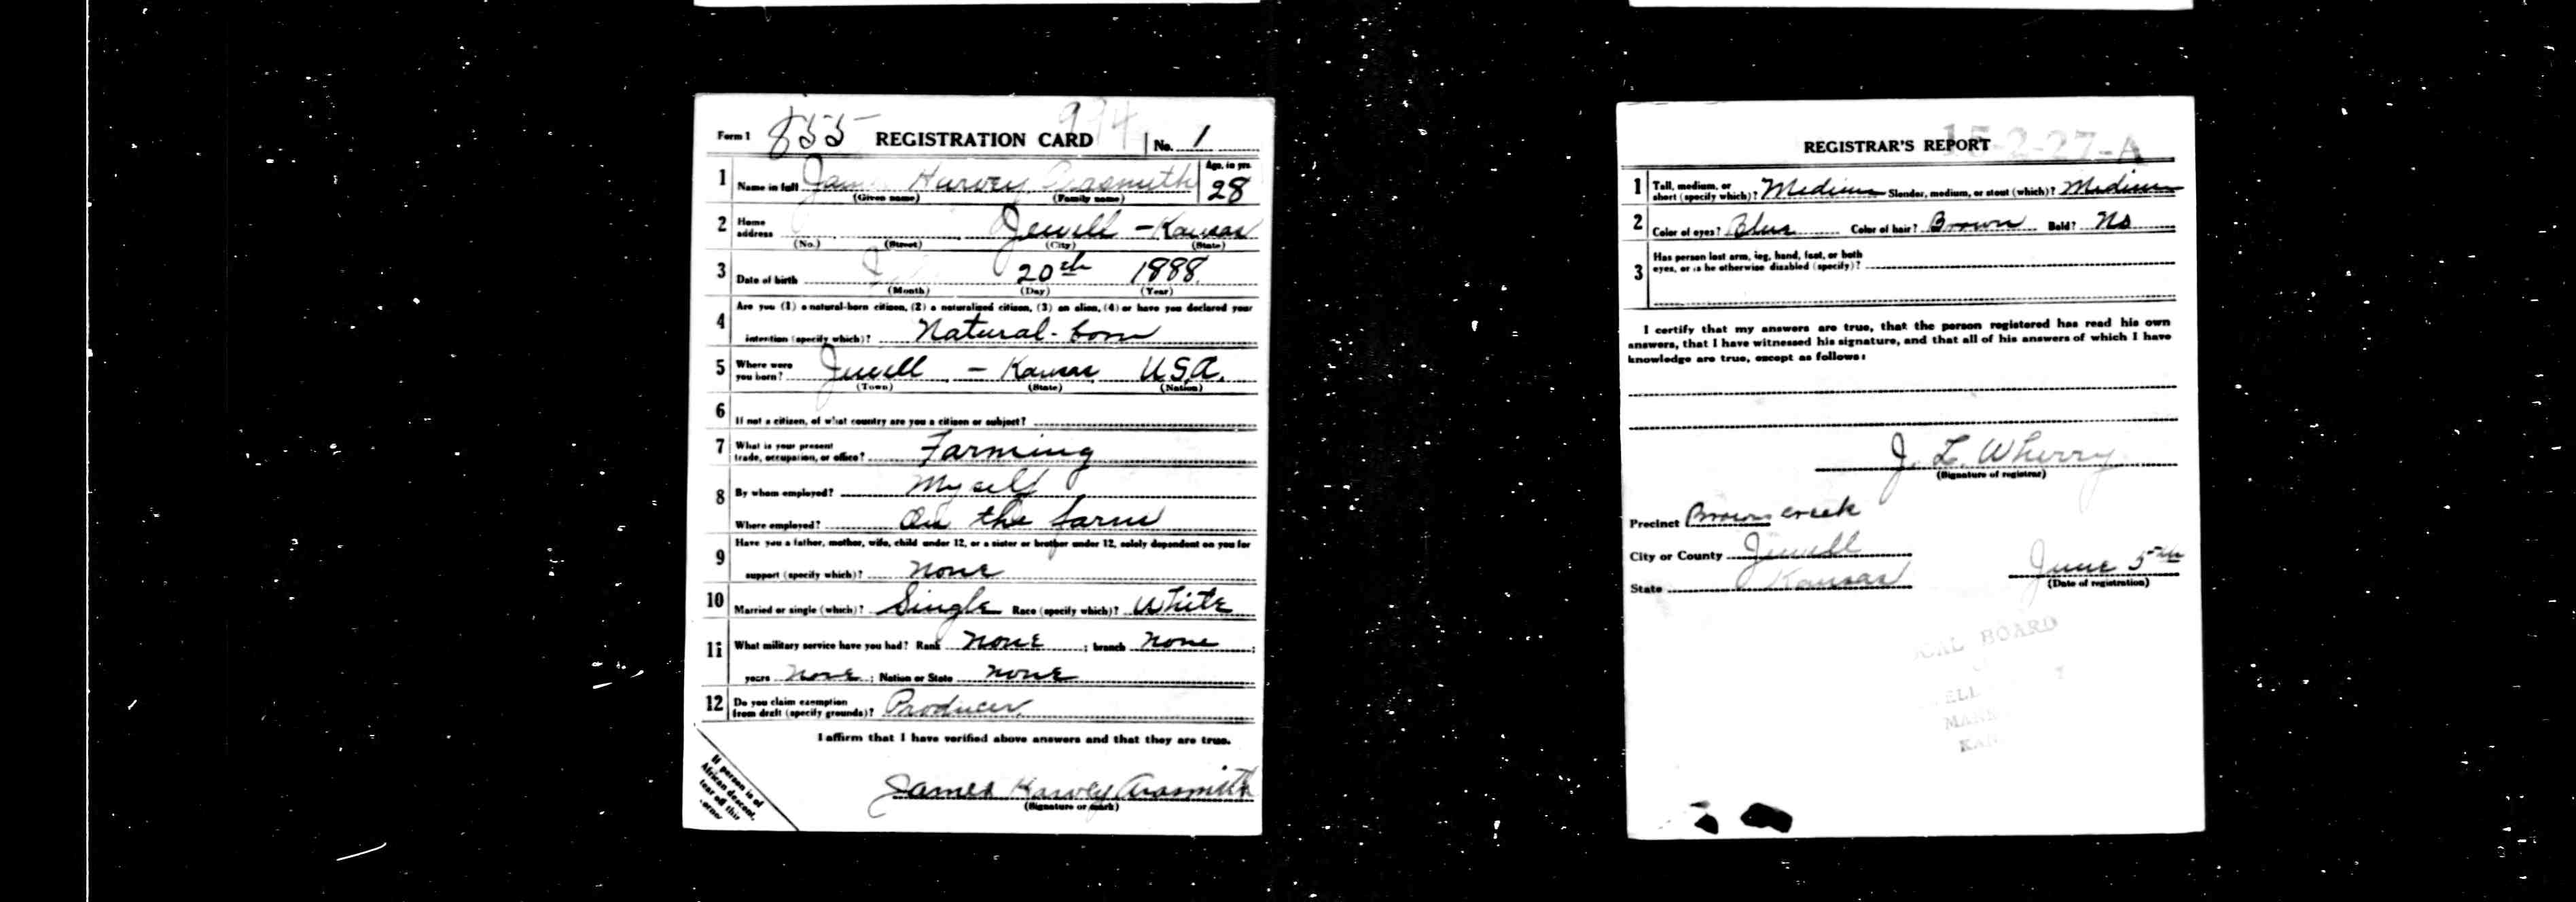 Form 1 855 REGISTRATION CARD 994 No. 1
1 Name in full Harvey Arasmith Age, in yrs. 28
(Given name) (Family name)
2 Home address Jewell - Kansas
(No.) (Street) (City) (State)
3 Date of birth 20th 1888
(Month) (Day) (Year)
4 Are you (1) a natural-born citizen, (2) a naturalized citizen, (3) an alien, (4) or have you declared your
intention (specify which)? Natural-born
5 Where were you born? Jewell - Kansas U.S.A.
(Town) (State) (Nation)
6 If not a citizen, of what country are you a citizen or subject?
7 What is your present trade, occupation, or office? Farming
8 By whom employed? Myself
Where employed? On the farm
9 Have you a father, mother, wife, child under 12, or a sister or brother under 12, solely dependent on you for
support (specify which)? None
10 Married or single (which)? Single Race (specify which)? White
11 What military service have you had? Rank None ; branch None ;
years None ; Nation or State None
12 Do you claim exemption from draft (specify grounds)? Producer
I affirm that I have verified above answers and that they are true.
James Harvey Arasmith
(Signature or mark)
If person is of
African descent,
tear off this
corner
REGISTRAR'S REPORT 15-2-27-A
1 Tall, medium, or short (specify which)? Medium Slender, medium, or stout (which)? Medium
2 Color of eyes? Blue Color of hair? Brown Bald? No
3 Has person lost arm, leg, hand, foot, or both
eyes, or is he otherwise disabled (specify)?
I certify that my answers are true, that the person registered has read his own
answers, that I have witnessed his signature, and that all of his answers of which I have
knowledge are true, except as follows:
J. L. Wherry
(Signature of registrar)
Precinct Browns Creek
City or County Jewell
State Kansas
June 5th
(Date of registration)
BOARD